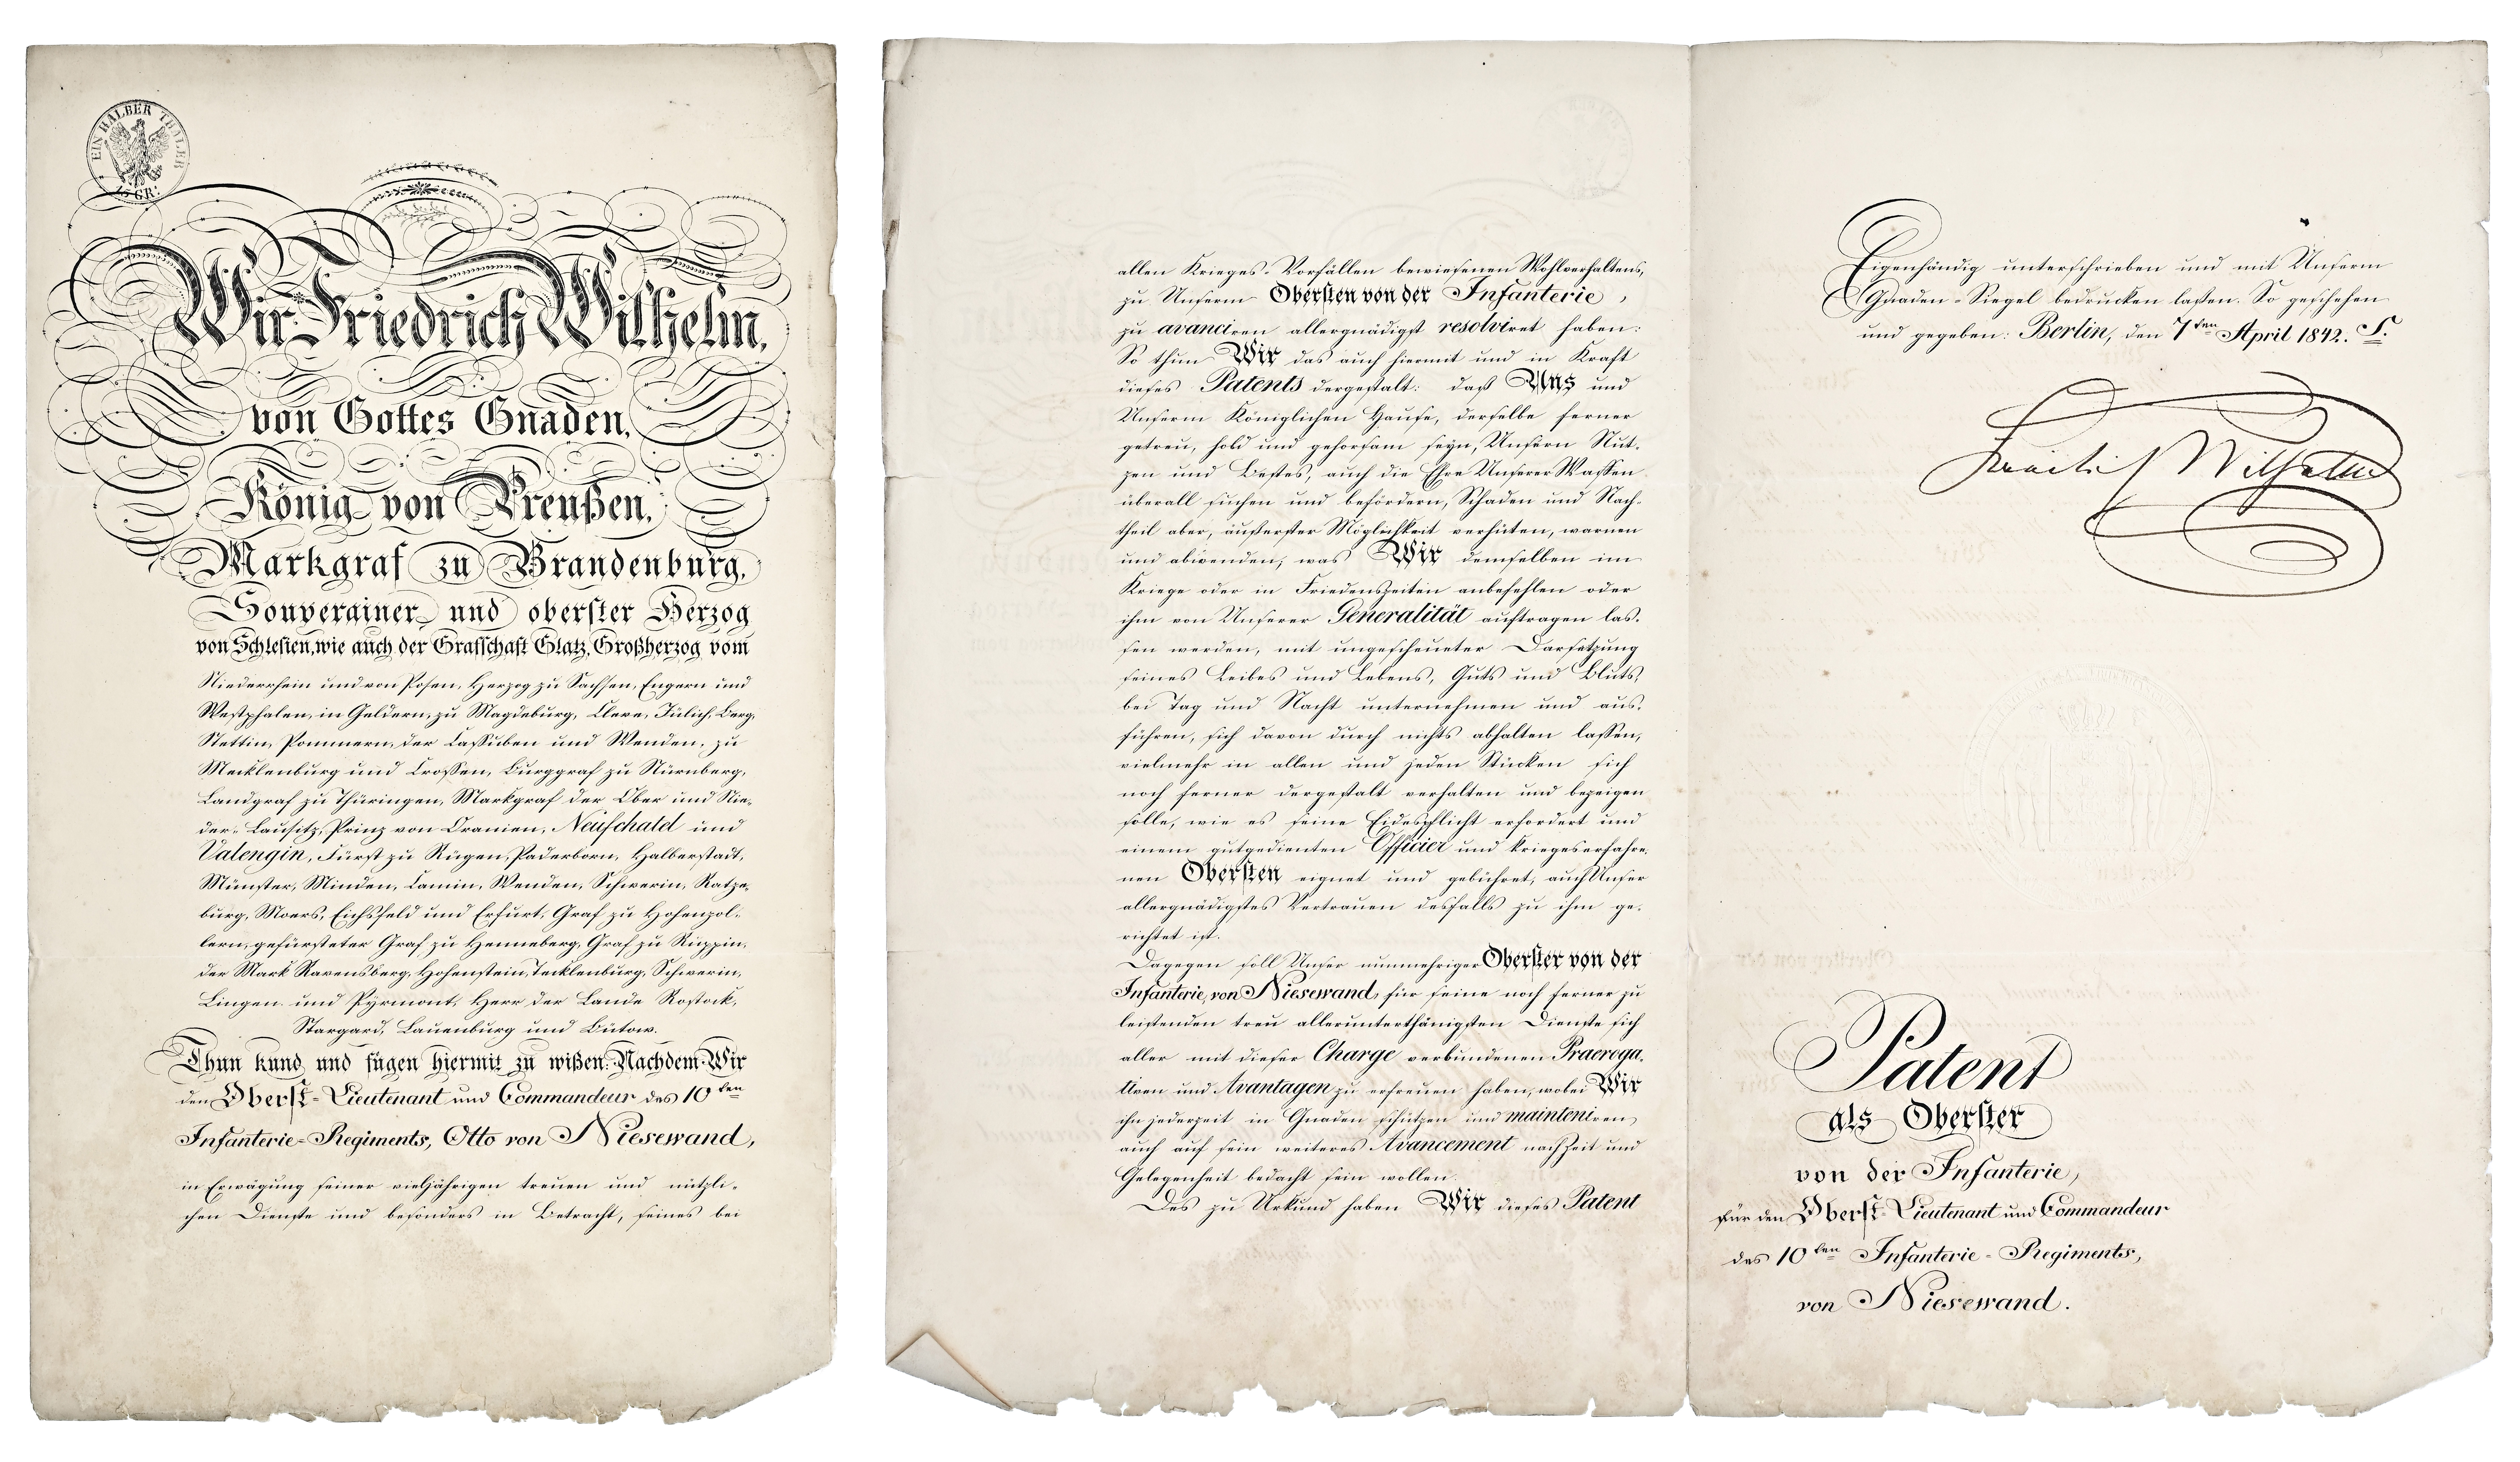 EIN HALBER THALER
15 GR:
Wir Friedrich Wilhelm,
von Gottes Gnaden,
König von Preußen,
Markgraf zu Brandenburg,
Souverainer und oberster Herzog
von Schlesien, wie auch der Grafschaft Glatz, Großherzog vom
Niederrhein und von Posen, Herzog zu Sachsen, Engern und
Westphalen, in Geldern, zu Magdeburg, Cleve, Jülich, Berg,
Stettin, Pommern, der Caßuben und Wenden, zu
Mecklenburg und Croßen, Burggraf zu Nürnberg,
Landgraf zu Thüringen, Markgraf der Ober und Nie-
der-Lausitz, Prinz von Oranien, Neufchatel und
Valengin, Fürst zu Rügen, Paderborn, Halberstadt,
Münster, Minden, Camin, Wenden, Schwerin, Ratze-
burg, Moers, Eichsfeld und Erfurt, Graf zu Hohenzol-
lern, gefürsteter Graf zu Henneberg, Graf zu Ruppin,
der Mark Ravensberg, Hohenstein, Tecklenburg, Schwerin,
Lingen und Pyrmont, Herr der Lande Rostock,
Stargard, Lauenburg und Bütow.
Thun kund und fügen hiermit zu wißen: Nachdem Wir
den Oberst-Lieutenant und Commandeur des 10ten
Infanterie-Regiments, Otto von Niesewand,
in Erwägung seiner vieljährigen treuen und nützli-
chen Dienste und besonders in Betracht, seines bei
allen Krieges-Vorfällen bewiesenen Wohlverhaltens,
zu Unserm Obersten von der Infanterie,
zu avanciren allergnädigst resolviret haben:
So thun Wir das auch hiermit und in Kraft
dieses Patents dergestalt: daß Uns und
Unserm Königlichen Hause, derselbe ferner
getreu, hold und gehorsam seyn, Unsern Nut-
zen und Bestes, auch die Ehre Unserer Waffen
überall suchen und befördern, Schaden und Nach-
theil aber, äußerster Möglichkeit verhüten, warnen
und abwenden, was Wir demselben im
Kriege oder in Friedenszeiten anbefehlen oder
ihm von Unserer Generalität auftragen las-
sen werden, mit ungescheueter Darsetzung
seines Leibes und Lebens, Guts und Bluts,
bei Tag und Nacht unternehmen und aus-
führen, sich davon durch nichts abhalten laßen,
vielmehr in allen und jeden Stücken sich
noch ferner dergestalt verhalten und bezeigen
solle, wie es seine Eidespflicht erfordert und
einem gutgedienten Officier und kriegeserfahre-
nen Obersten eignet und gebühret, auch Unser
allergnädigstes Vertrauen desfalls zu ihm ge-
richtet ist.
Dagegen soll Unser nunmehriger Oberster von der
Infanterie, von Niesewand, für seine noch ferner zu
leistenden treu allerunterthänigsten Dienste sich
aller mit dieser Charge verbundenen Praeroga-
tiven und Avantagen zu erfreuen haben, wobei Wir
ihn jederzeit in Gnaden schützen und mainteniren,
auch auf sein weiteres Avancement nach Zeit und
Gelegenheit bedacht sein wollen.
Des zu Urkund haben Wir dieses Patent
Eigenhändig unterschrieben und mit Unserm
Gnaden-Siegel bedrucken laßen. So geschehen
und gegeben: Berlin, den 7ten April 1842.
Friedrich Wilhelm
Patent
als Oberster
von der Infanterie,
für den Oberst-Lieutenant und Commandeur
des 10ten Infanterie-Regiments,
von Niesewand.